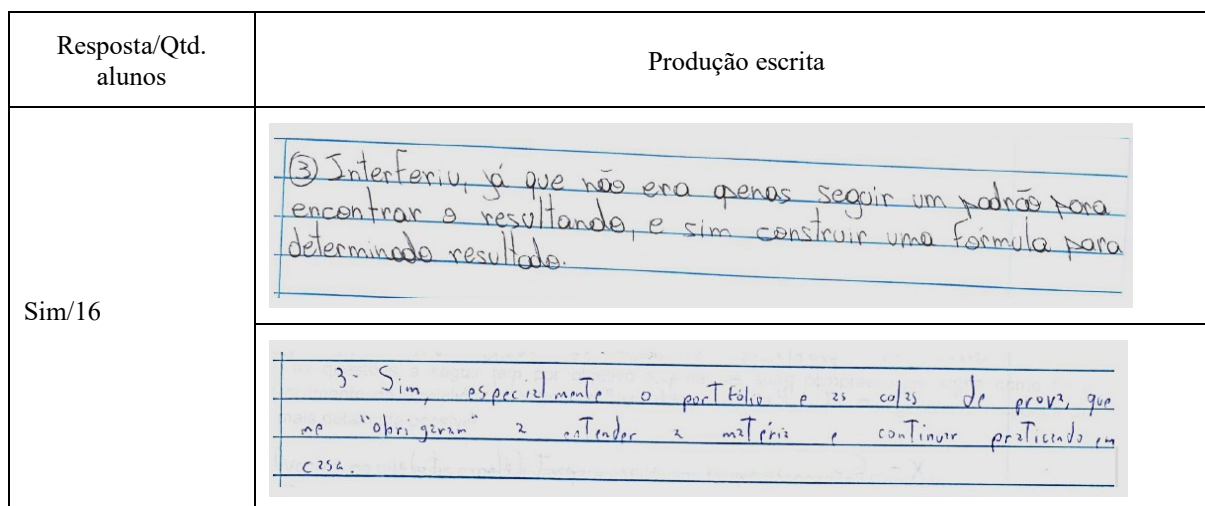 Resposta/Qtd.
alunos
Produção escrita
Sim/16
③ Interferiu, já que não era apenas seguir um padrão para
encontrar o resultando, e sim construir uma fórmula para
determinado resultado.
3- Sim, especialmente o portfólio e as colas de prova, que
me "obrigaram" a entender a matéria e continuar praticando em
casa.